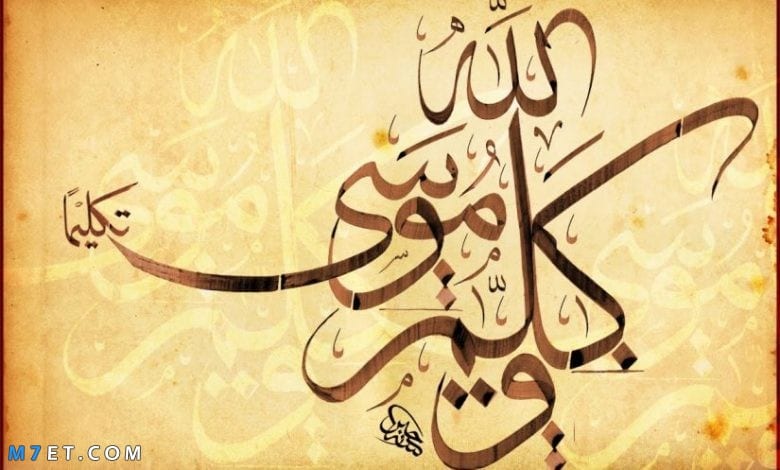 وكلّم اللّٰهُ مُوسَى تكليمًا
M7ET.COM